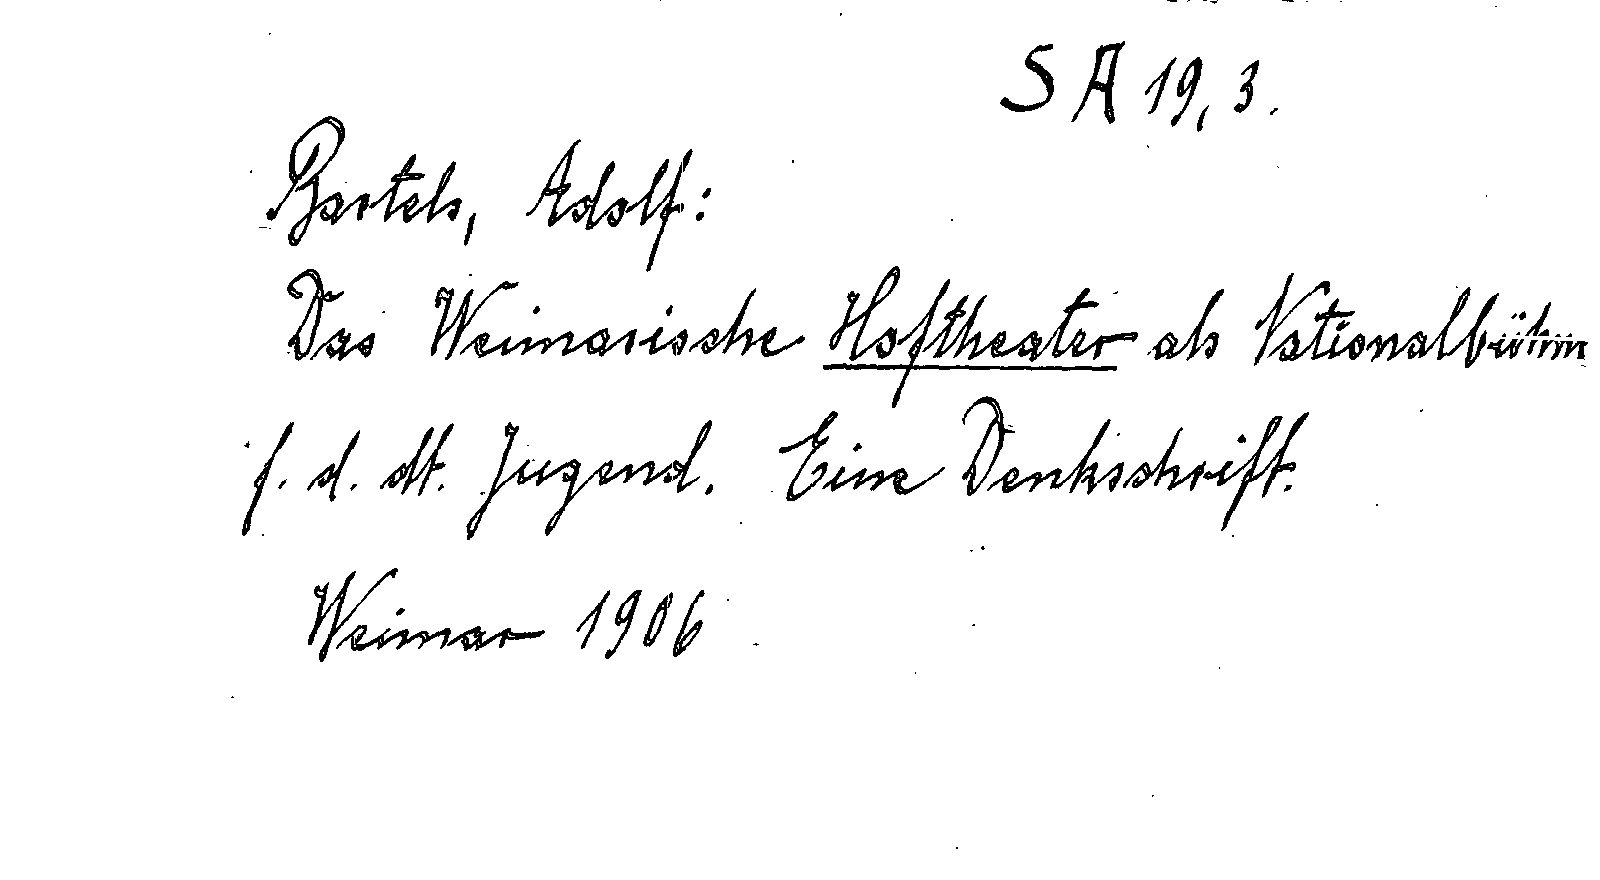 S A 19, 3.
Bartels, Adolf:
Das Weimarische Hoftheater als Nationalbühne
f. d. dt. Jugend. Eine Denkschrift.
Weimar 1906